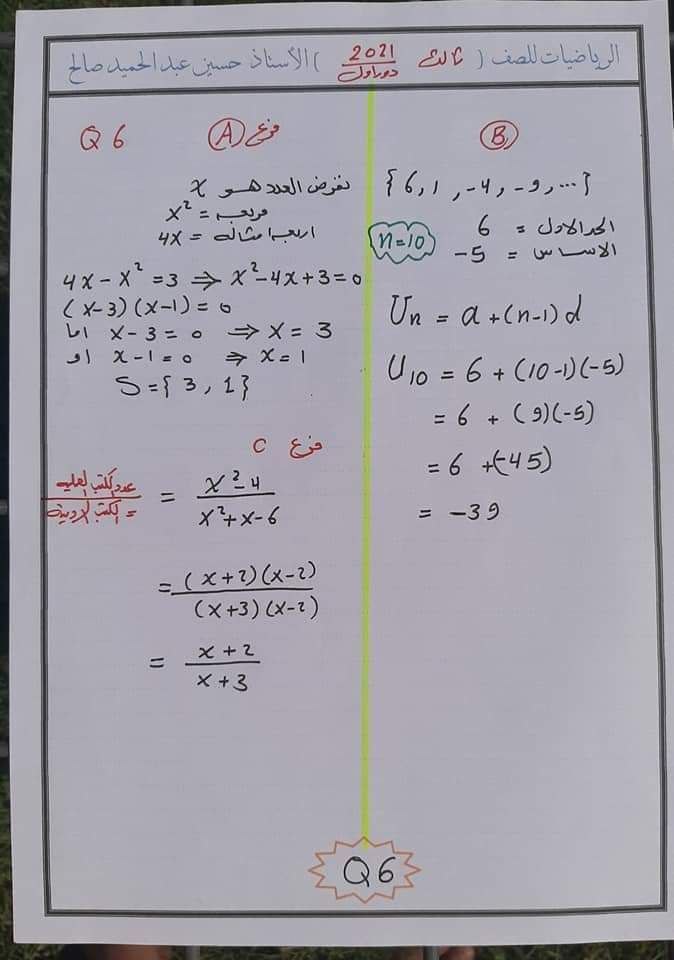 الرياضيات للصف ( ثالث 2021 دور اول ) الأستاذ حسين عبد الحميد صالح
Q 6 فرع (A)
نفرض العدد هو x
مربعه = x²
اربعة امثاله = 4x
4x - x² = 3 ⇒ x² - 4x + 3 = 0
(x-3)(x-1) = 0
اما x - 3 = 0 ⇒ x = 3
او x - 1 = 0 ⇒ x = 1
S = { 3 , 1 }
فرع C
عدد الكتب العلمية / = الكتب الادبية = x² - 4 / x² + x - 6
= (x+2)(x-2) / (x+3)(x-2)
= x + 2 / x + 3
(B)
{ 6 , 1 , -4 , -9 , ... }
الحد الاول = 6
الاساس = -5
n=10
Un = a + (n-1) d
U10 = 6 + (10-1)(-5)
= 6 + (9)(-5)
= 6 + (-45)
= -39
Q6